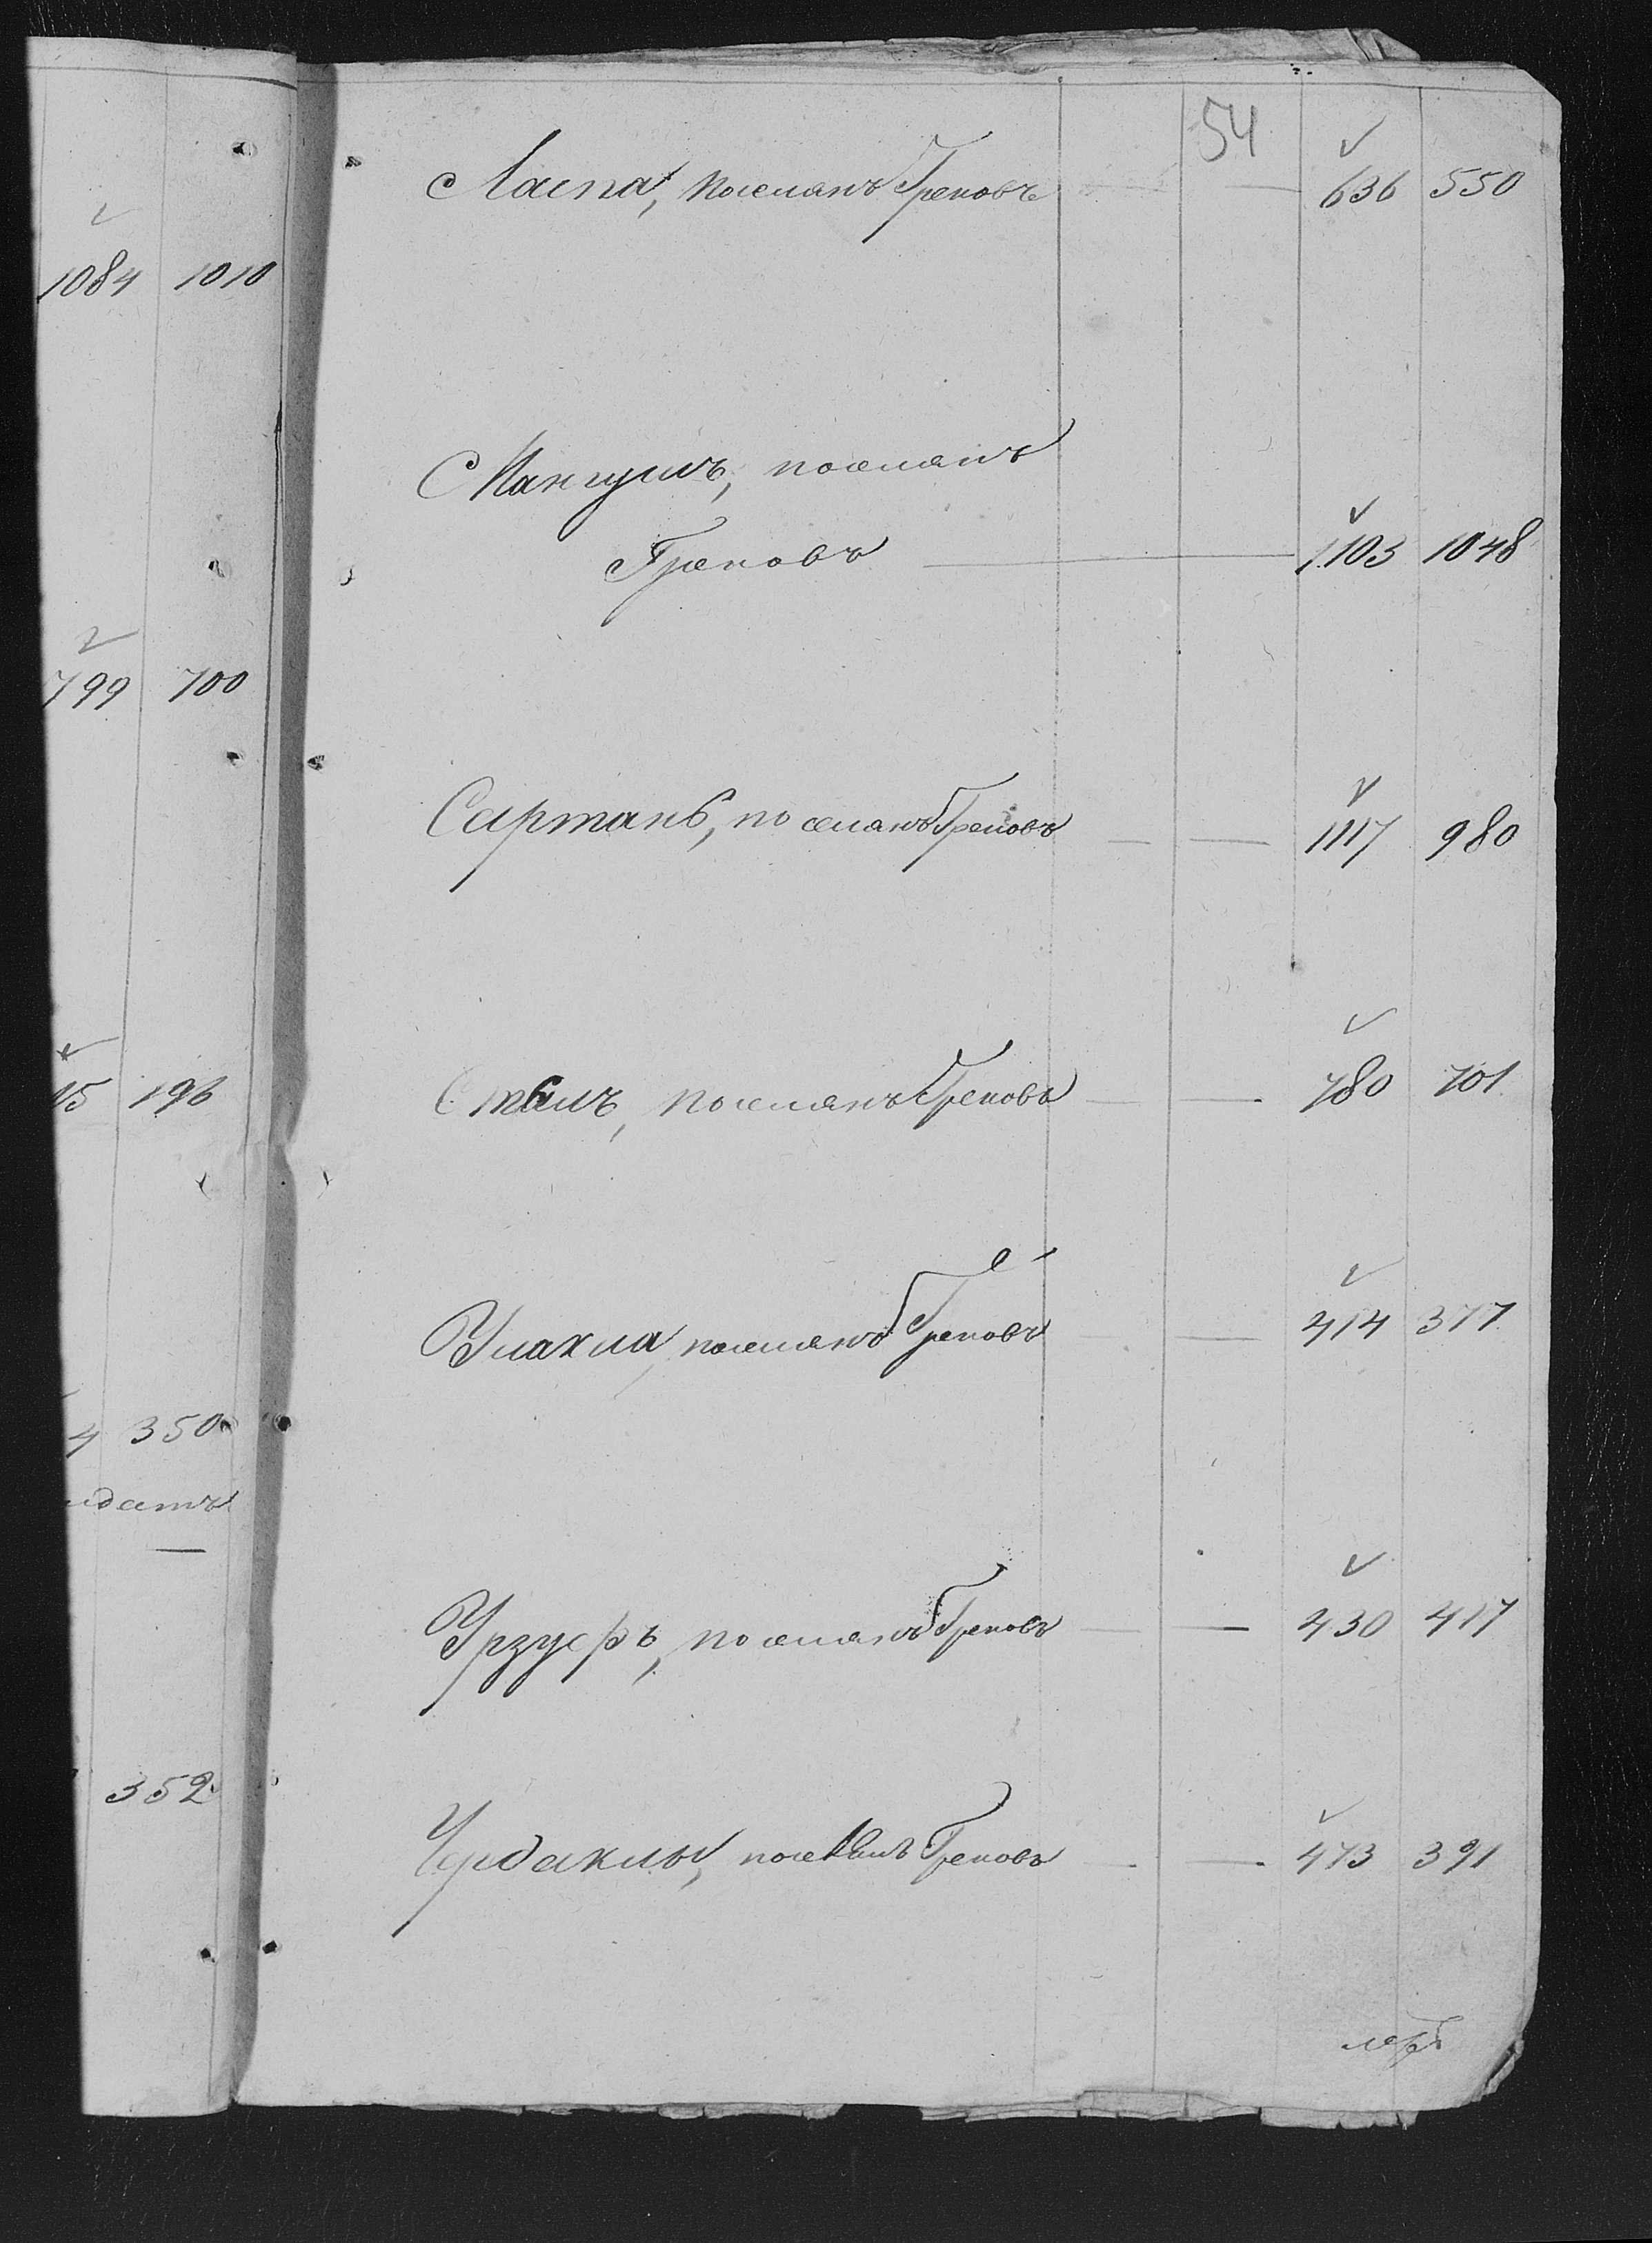 1084 1010
799 700
15 196
4 350
352
54
Ласпа, поселянъ Грековъ — 636 550
Мангушъ, поселянъ
Грековъ — 1103 1048
Сартана, поселянъ Грековъ — — 1117 980
Стыла, поселянъ Грековъ — — 780 701
Улахла, поселянъ Грековъ — 414 377
Урзуфъ, поселянъ Грековъ — — 430 417
Чердаклы, поселянъ Грековъ — — 473 391